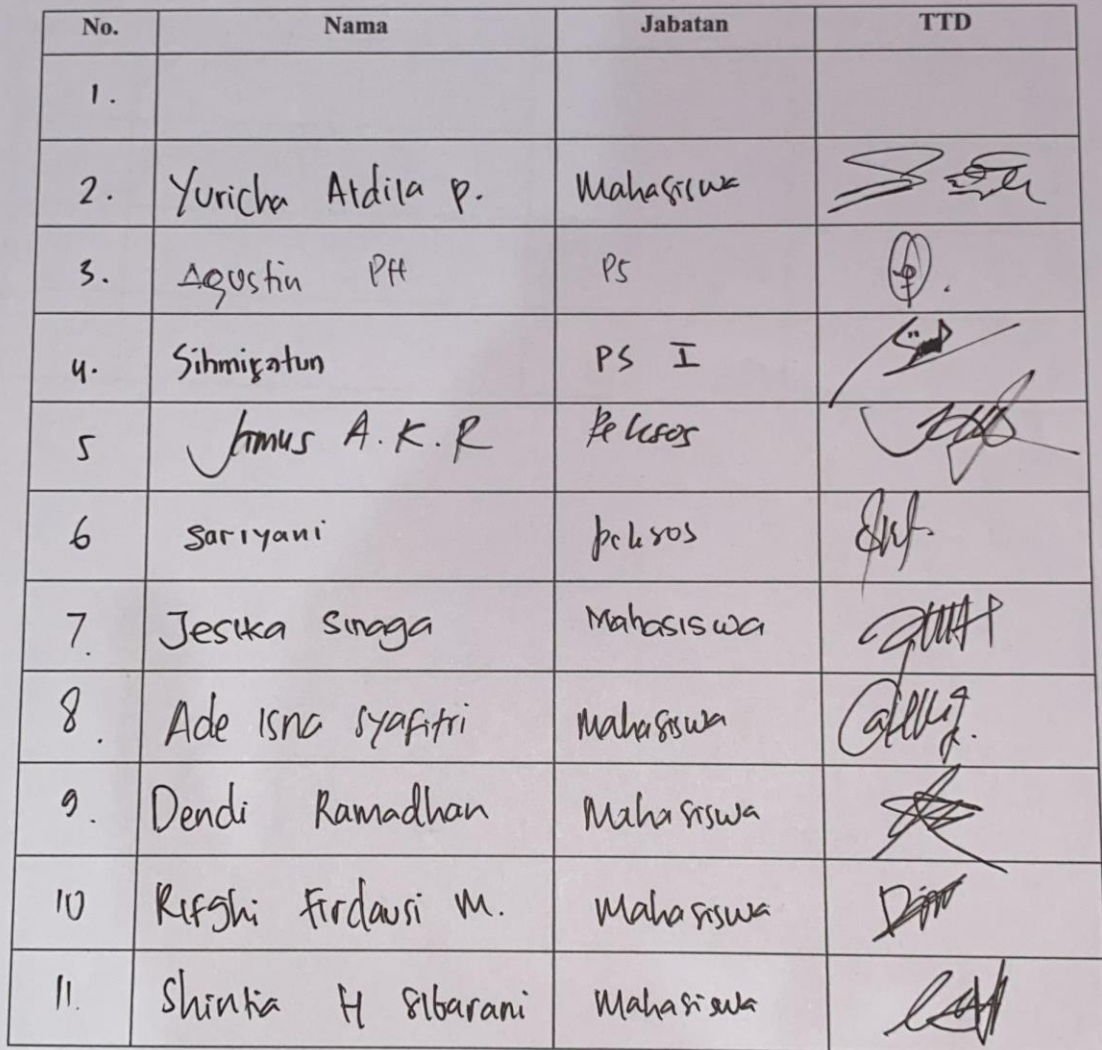 No. Nama Jabatan TTD
1.
2. Yuricha Ardila P. Mahasiswa
3. Agustin PH PS
4. Sihmiyatun PS I
5 A.K.R Peksos
6 Sariyani Peksos
7. Jesika Sinaga Mahasiswa
8. Ade Isna Syafitri Mahasiswa
9. Dendi Ramadhan Mahasiswa
10 Rifghi Firdausi M. Mahasiswa
11. Shintia H Sibarani Mahasiswa